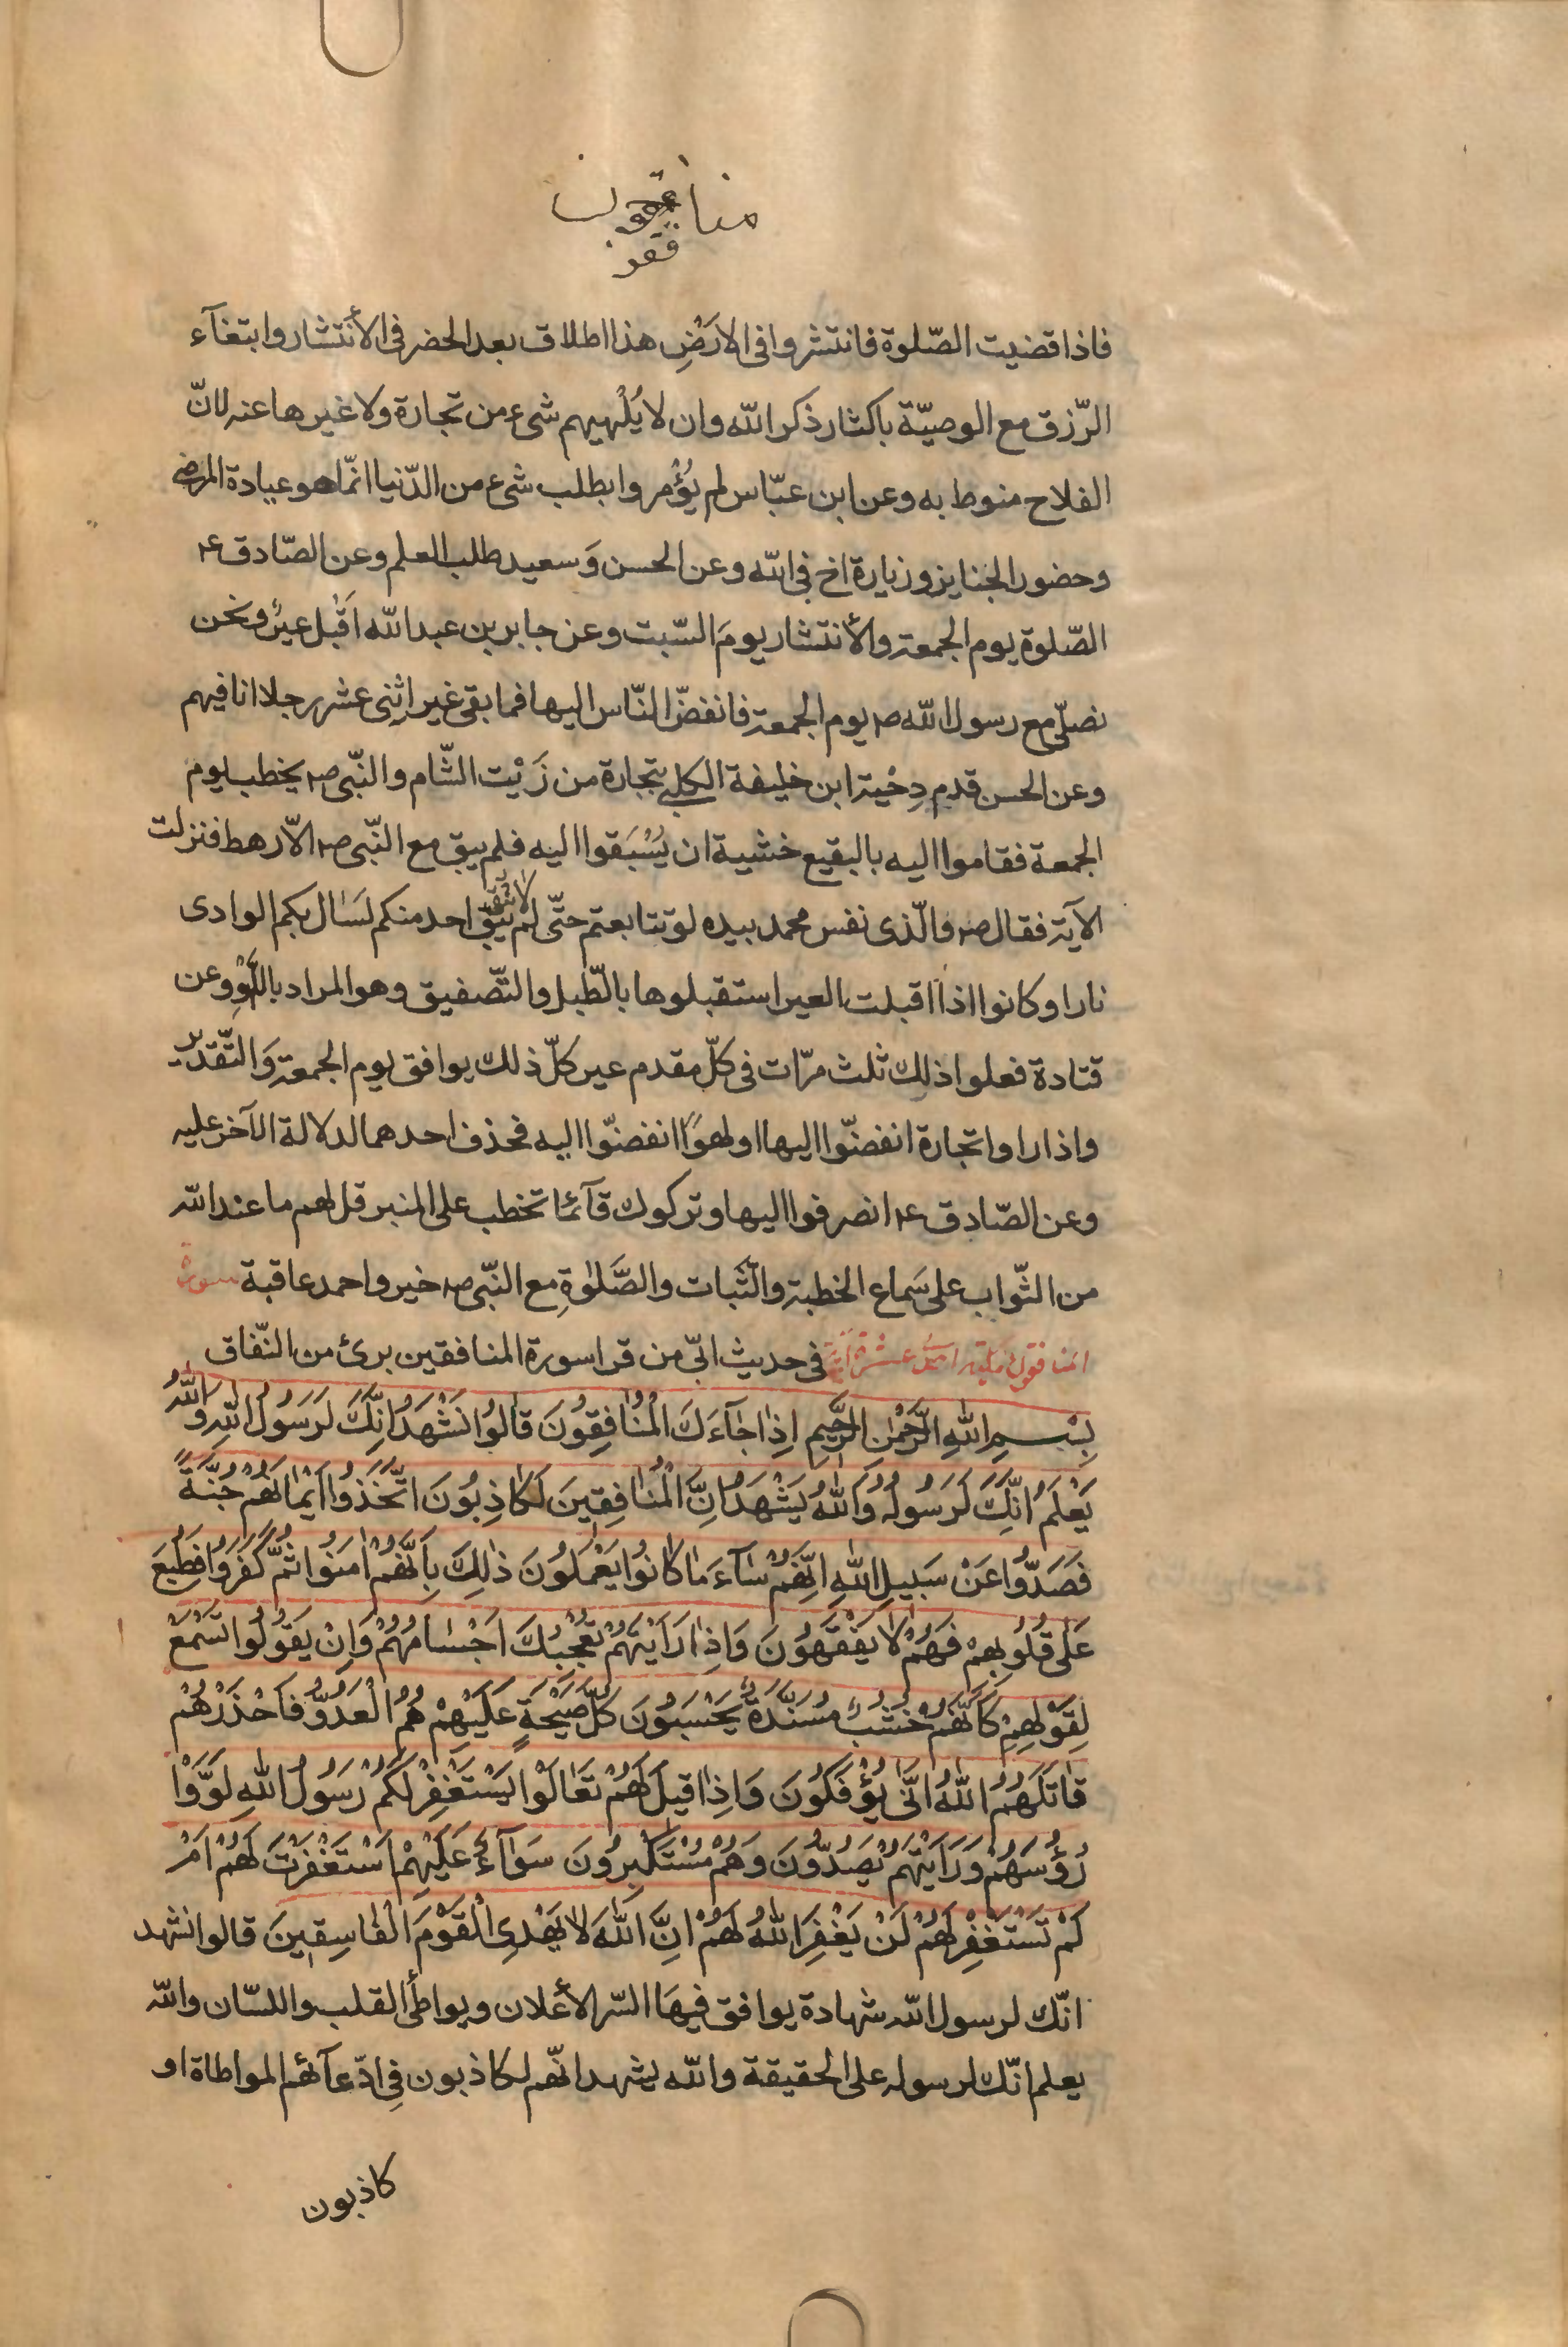 منافقون
فقو
فاذا قضيت الصّلوة فانتشروا فى الارَضِ هذا اطلاق بعد الحضر فى الأنتشار وابتغآء
الرّزق مع الوصيّة باكثار ذكر الله وان لا يُلْهيهم شىء من تجارة ولا غيرها عنه لانّ
الفلاح منوط به وعن ابن عبّاس لم يُؤْمروا بطلب شىء من الدّنيا انّما هو عيادة المرضى
وحضور الجنايز وزيارة اخ فى الله وعن الحسن وَسعيد طلب العلم وعن الصّادق ع
الصّلوة يوم الجمعة والأنتشار يومَ السّبت وعن جابر بن عبد الله اَقْبل عيرٌ ونحن
نصلّى مع رسول الله ص يوم الجمعة فانفضّ النّاس اليها فما بقى غير اثنى عشر رجلا انا فيهم
وعن الحسن قدم دِحْية ابن خليفة الكلبى بتجارة من زَيْت الشّام والنّبى ص يخطب يوم
الجمعة فقاموا اليه بالبقيع خشية ان يُسْبَقوا اليه فلم يبق مع النّبى ص الّا رهط فنزلت
الآية فقال ص والّذى نفس محمد بيده لو تتابعتم حتّى لم يبق احد منكم لسَال بكم الوادى
نارا وكانوا اذا اقبلت العير استقبلوها بالطّبل والتّصفيق وهو المراد باللّهْوِ وعن
قتادة فعلوا ذلك ثلث مرّات فى كلّ مقدم عير كلّ ذلك يوافق يوم الجمعة وَالتّقدير
واذا راوا تجارة انفضّوا اليها او لهوًا انفضّوا اليه فحذف احدهما لدلالة الآخر عليه
وعن الصّادق ع انصرفوا اليها وتركوك قآئما تخطب على المنبر قل لهم ما عند الله
من الثّواب على سَماع الخطبة والثّبات والصَّلوٰةِ مع النّبى ص خير واحمد عاقبة سورة
المنافقون احدى عشرة آية فى حديث ابىّ من قرا سورة المنافقين برئ من النّفاق
بِسْمِ اللهِ الرَّحْمٰنِ الرَّحِيمِ اِذٰا جٰآءَكَ الْمُنٰافِقُونَ قٰالُوا نَشْهَدُ اِنَّكَ لَرَسُولُ اللهِ وَاللهُ
يَعْلَمُ اِنَّكَ لَرَسُولُهُ وَاللهُ يَشْهَدُ اِنَّ الْمُنٰافِقِينَ لَكٰاذِبُونَ اتَّخَذُوا اَيْمٰانَهُمْ جُنَّةً
فَصَدُّوا عَنْ سَبِيلِ اللهِ اِنَّهُمْ سٰآءَ مٰا كٰانُوا يَعْمَلُونَ ذٰلِكَ بِاَنَّهُمْ اٰمَنُوا ثُمَّ كَفَرُوا فَطُبِعَ
عَلٰى قُلُوبِهِمْ فَهُمْ لٰا يَفْقَهُونَ وَاِذٰا رَاَيْتَهُمْ تُعْجِبُكَ اَجْسٰامُهُمْ وَاِنْ يَقُولُوا تَسْمَعْ
لِقَوْلِهِمْ كَاَنَّهُمْ خُشُبٌ مُسَنَّدَةٌ يَحْسَبُونَ كُلَّ صَيْحَةٍ عَلَيْهِمْ هُمُ الْعَدُوُّ فَاحْذَرْهُمْ
قٰاتَلَهُمُ اللهُ اَنّٰى يُؤْفَكُونَ وَاِذٰا قِيلَ لَهُمْ تَعٰالَوْا يَسْتَغْفِرْ لَكُمْ رَسُولُ اللهِ لَوَّوْا
رُؤُسَهُمْ وَرَاَيْتَهُمْ يَصُدُّونَ وَهُمْ مُسْتَكْبِرُونَ سَوٰآءٌ عَلَيْهِمْ اَسْتَغْفَرْتَ لَهُمْ اَمْ
لَمْ تَسْتَغْفِرْ لَهُمْ لَنْ يَغْفِرَ اللهُ لَهُمْ اِنَّ اللهَ لٰا يَهْدِى الْقَوْمَ الْفٰاسِقِينَ قالوا نشهد
انّك لرسول الله شهادة يوافق فيهَا السّر الأعلان ويواطأ القلب واللسّان والله
يعلم انّك لرسوله على الحقيقة والله يشهد انّهم لكاذبون فى ادّعآئهم المواطاة او
كاذبون